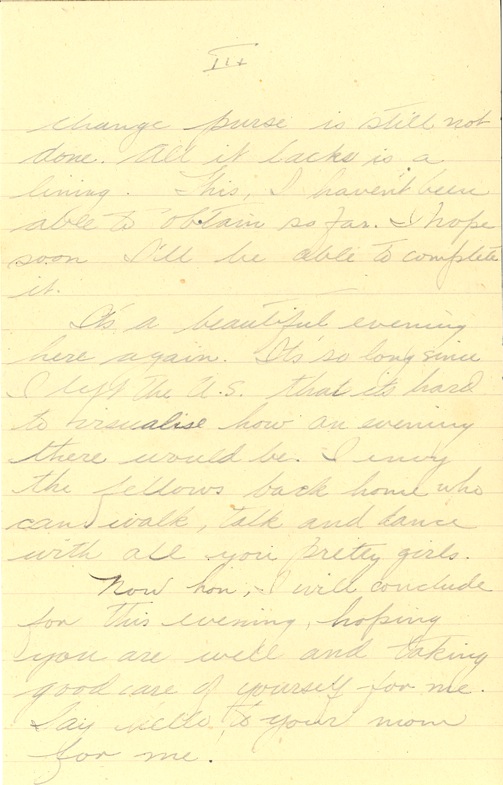 III
change purse is still not
done. All it lacks is a
lining. This, I haven't been
able to obtain so far. I hope
soon I'll be able to complete
it.
It's a beautiful evening
here again. It's so long since
I left the U.S. that it's hard
to visualise how an evening
there would be. I envy
the fellows back home who
can walk, talk and dance
with all you pretty girls.
Now hon, I will conclude
for this evening, hoping
you are well and taking
good care of yourself for me.
Say hello to your mom
for me.